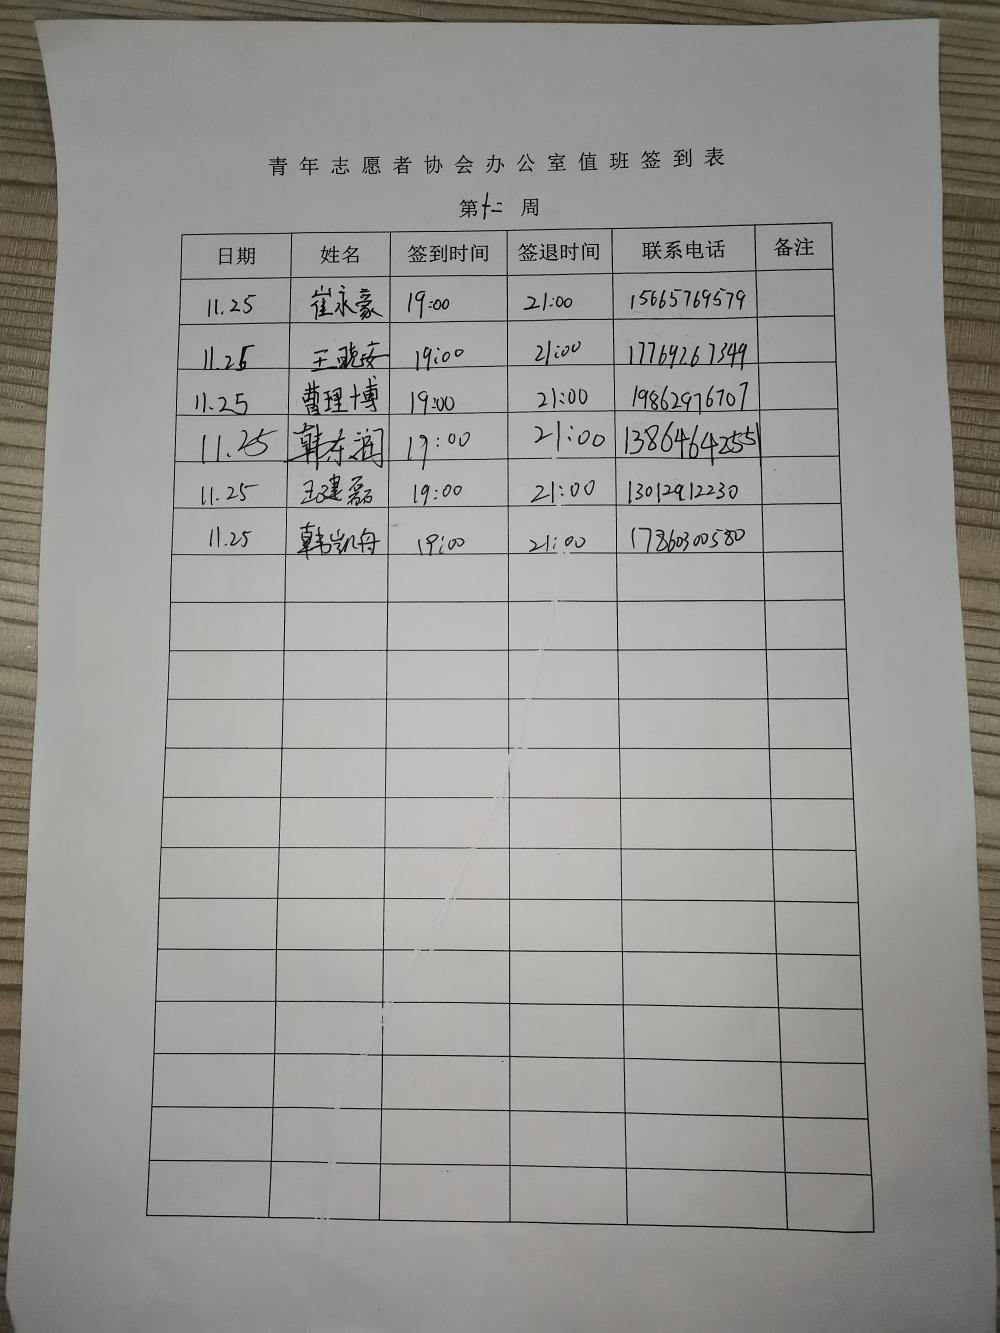 青年志愿者协会办公室值班签到表
第十二 周
日期 姓名 签到时间 签退时间 联系电话 备注
11.25 崔永豪 19:00 21:00 15665769579
11.25 王晓安 19:00 21:00 17769267349
11.25 曹理博 19:00 21:00 19862976707
11.25 韩东润 19:00 21:00 13864642551
11.25 王建磊 19:00 21:00 13012912230
11.25 韩凯舟 19:00 21:00 17860300580